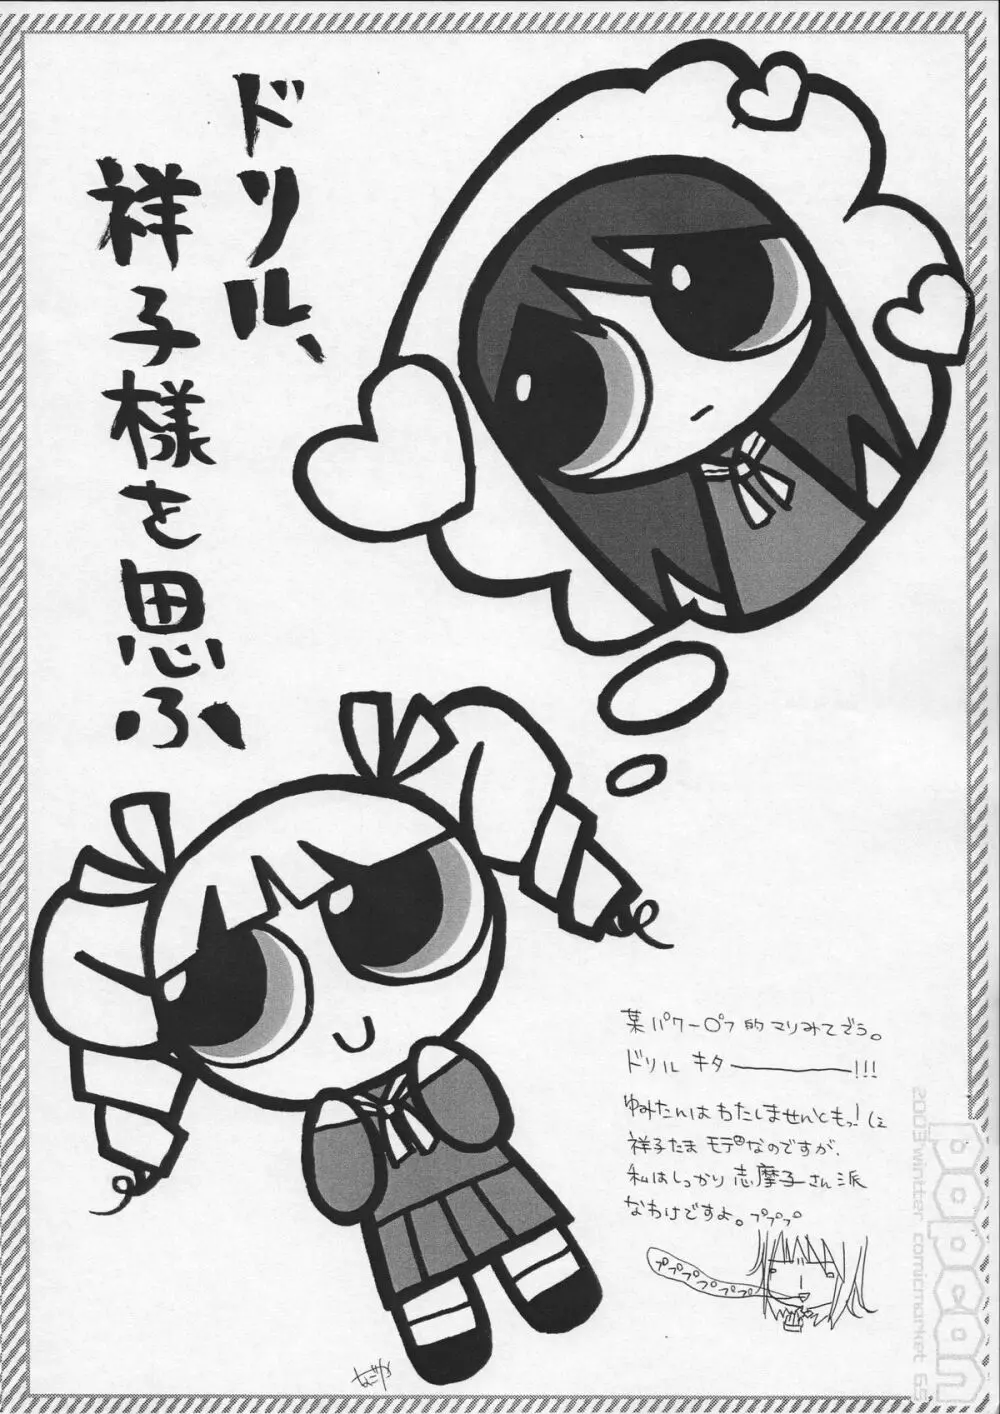 ドリル、
祥子様を思ふ
某パワーロフ的マリみてでう。
ドリル キタ――――!!!
ゆみたんはわたしませんともっ!(と
祥子たま モテ②なのですが、
私はしっかり 志摩子さん派
なわけですよ。ププププ
ププププププププ
2003wintter comicmarket 65
popcan